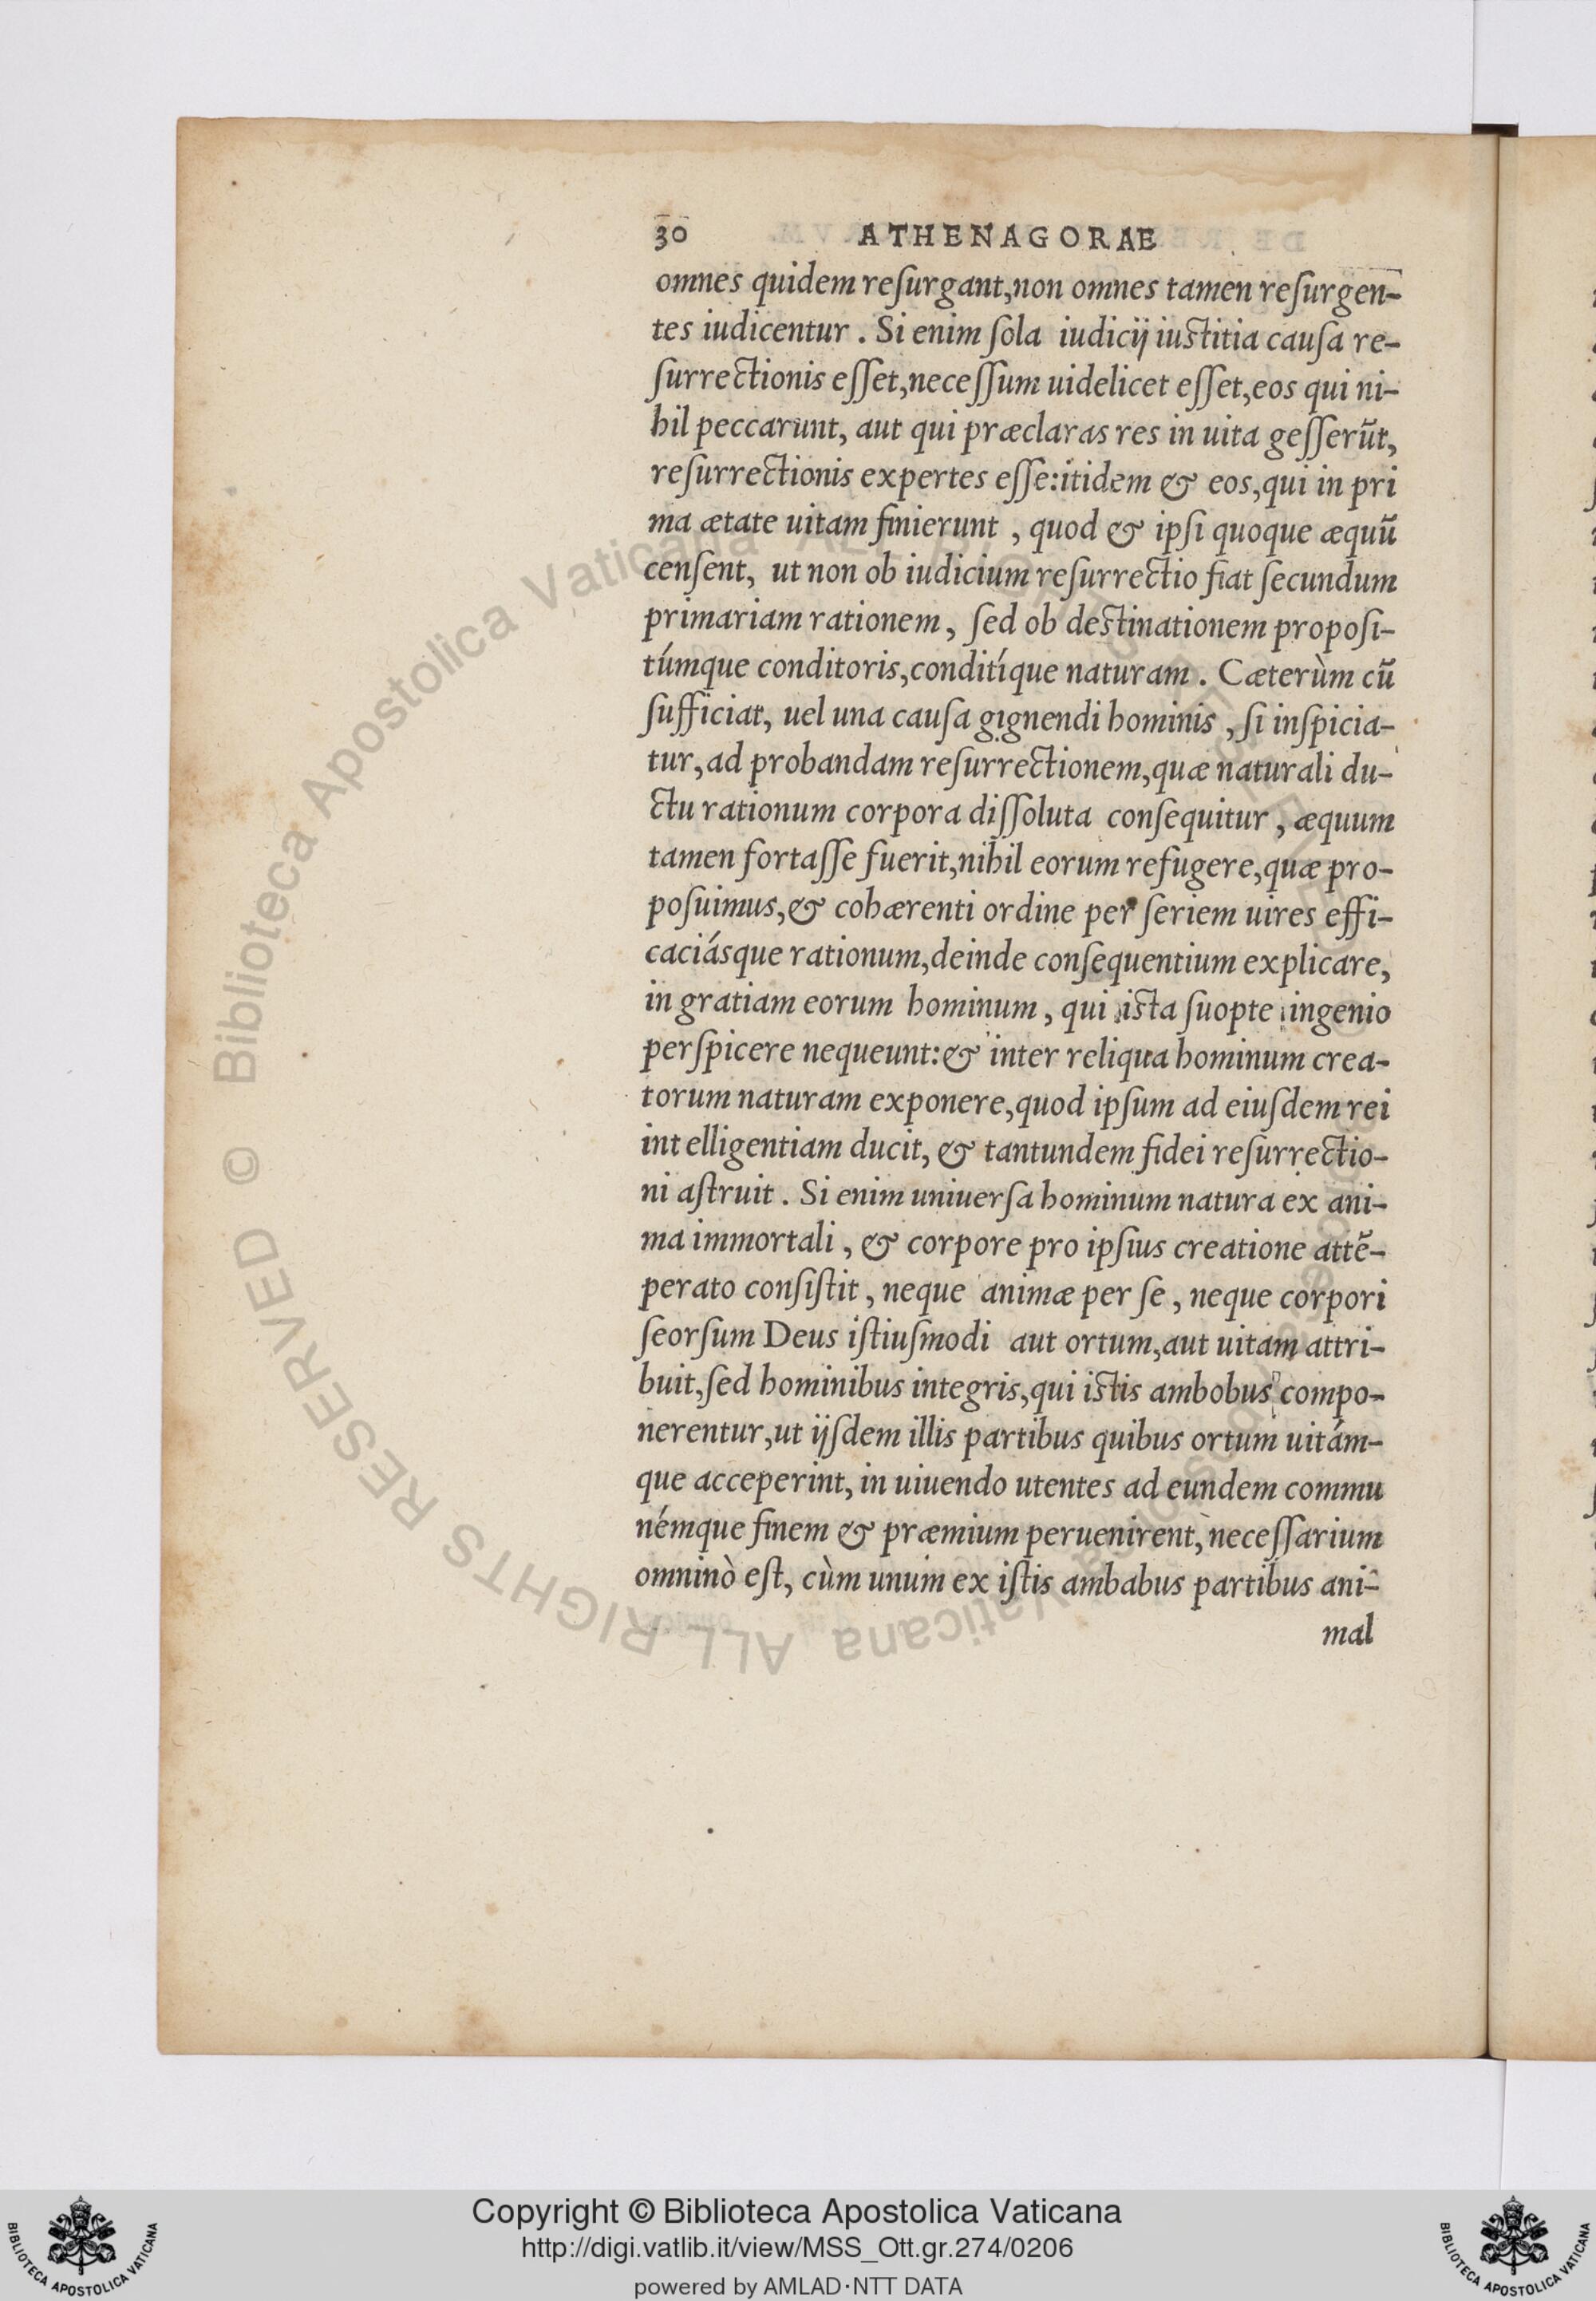 30 ATHENAGORAE
omnes quidem reſurgant,non omnes tamen reſurgen-
tes iudicentur . Si enim ſola iudicij iuſtitia cauſa re-
ſurrectionis eſſet,neceſſum uidelicet eſſet,eos qui ni-
hil peccarunt, aut qui præclaras res in uita geſſerũt,
reſurrectionis expertes eſſe:itidem & eos,qui in pri
ma ætate uitam finierunt , quod & ipſi quoque æquũ
cenſent, ut non ob iudicium reſurrectio fiat ſecundum
primariam rationem, ſed ob deſtinationem propoſi-
túmque conditoris,conditíque naturam . Cæterùm cũ
ſufficiat, uel una cauſa gignendi hominis , ſi inſpicia-
tur,ad probandam reſurrectionem,quæ naturali du-
ctu rationum corpora diſſoluta conſequitur , æquum
tamen fortaſſe fuerit,nihil eorum refugere,quæ pro-
poſuimus,& cohærenti ordine per ſeriem uires effi-
caciásque rationum,deinde conſequentium explicare,
in gratiam eorum hominum , qui iſta ſuopte ingenio
perſpicere nequeunt:& inter reliqua hominum crea-
torum naturam exponere,quod ipſum ad eiuſdem rei
intelligentiam ducit, & tantundem fidei reſurrectio-
ni aſtruit . Si enim uniuerſa hominum natura ex ani-
ma immortali , & corpore pro ipſius creatione attẽ-
perato conſiſtit , neque animæ per ſe , neque corpori
ſeorſum Deus iſtiuſmodi aut ortum,aut uitam attri-
buit,ſed hominibus integris,qui iſtis ambobus compo-
nerentur,ut ijſdem illis partibus quibus ortum uitám-
que acceperint, in uiuendo utentes ad eundem commu
némque finem & præmium peruenirent, neceſſarium
omninò eſt, cùm unum ex iſtis ambabus partibus ani-
mal
© Biblioteca Apostolica Vaticana ALL RIGHTS RESERVED
Copyright © Biblioteca Apostolica Vaticana
http://digi.vatlib.it/view/MSS_Ott.gr.274/0206
powered by AMLAD·NTT DATA
BIBLIOTECA APOSTOLICA VATICANA
BIBLIOTECA APOSTOLICA VATICANA